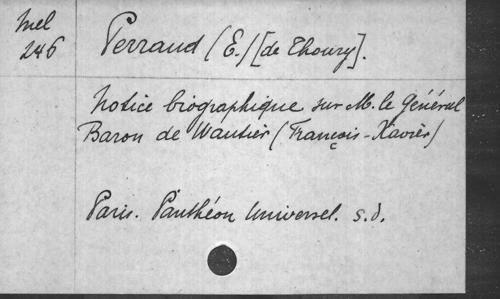 Mel
246
Perraud (E.) [de Thoury].
Notice biographique sur M. le Général
Baron de Wautier (François-Xavier)
Paris. Panthéon Universel. s.d.